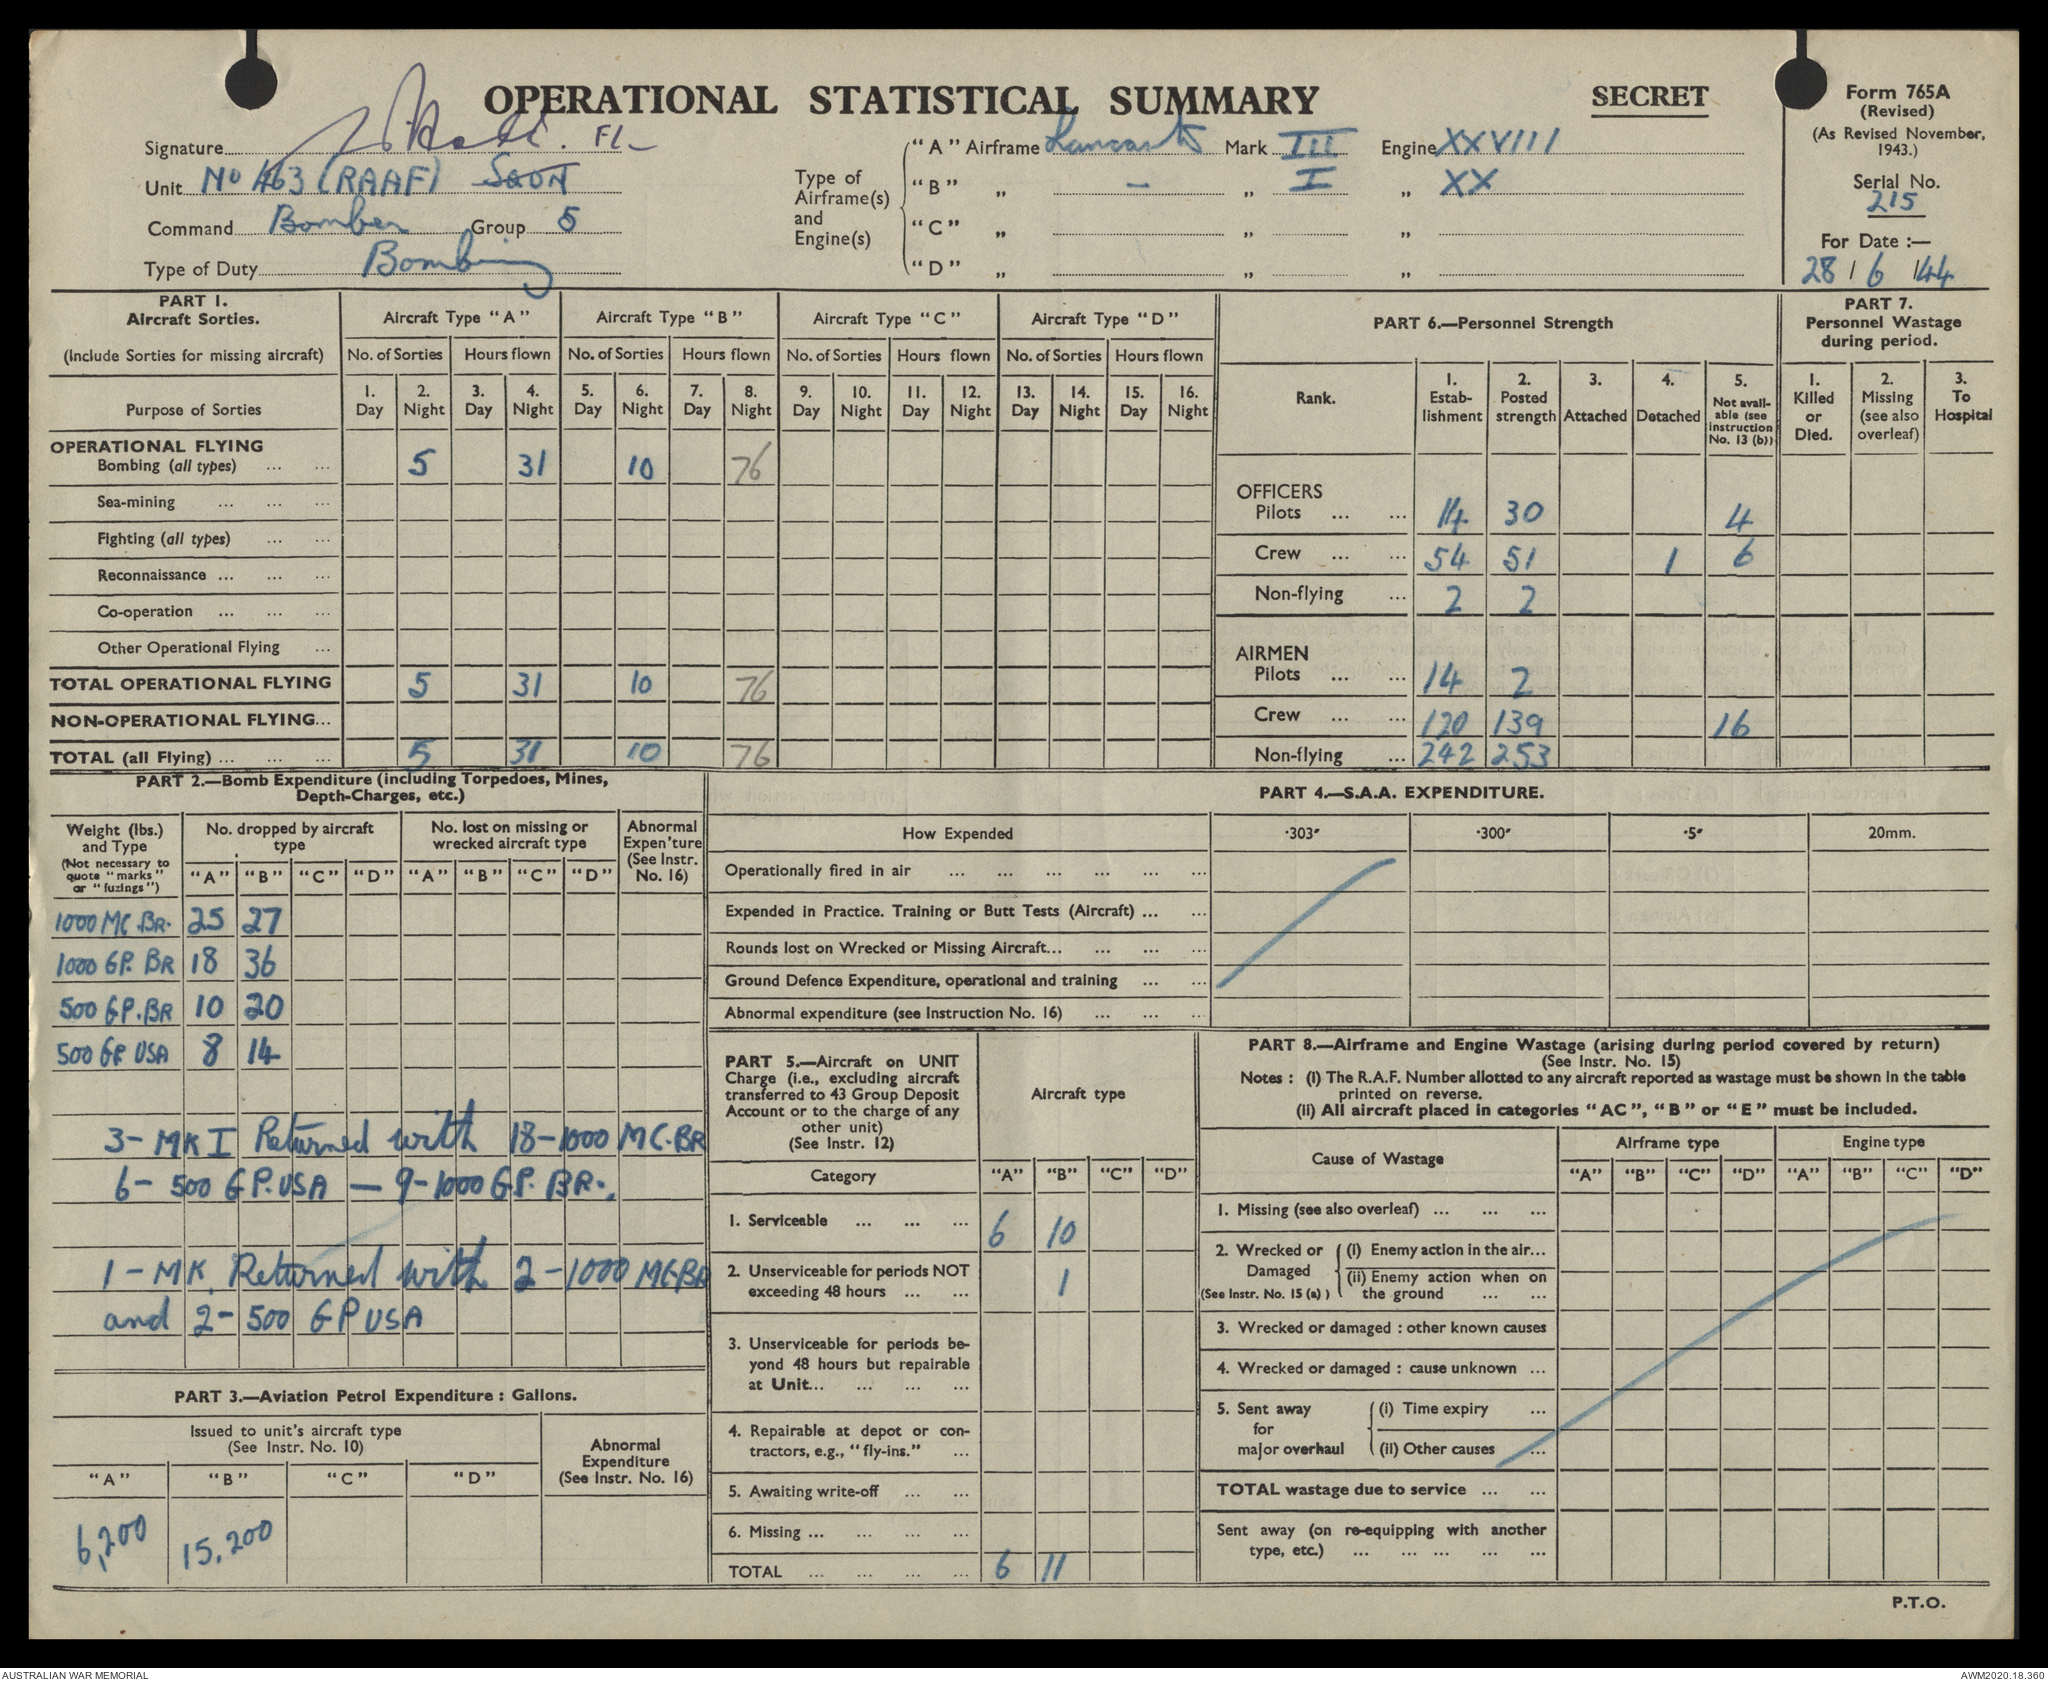 OPERATIONAL STATISTICAL SUMMARY
SECRET
Form 765A
(Revised)
(As Revised November,
1943.)
Serial No.
215
For Date :—
28 / 6 / 44
Signature FL
Unit No 463 (RAAF) SQDN
Command Bomber Group 5
Type of Duty Bombing
Type of
Airframe(s)
and
Engine(s)
"A" Airframe Lancaster Mark III Engine XXVIII
"B" „ — „ I „ XX
"C" „ „ „
"D" „ „ „
PART 1.
Aircraft Sorties.
(Include Sorties for missing aircraft)
Aircraft Type "A" Aircraft Type "B" Aircraft Type "C" Aircraft Type "D"
No. of Sorties Hours flown No. of Sorties Hours flown No. of Sorties Hours flown No. of Sorties Hours flown
Purpose of Sorties
1. 2. 3. 4. 5. 6. 7. 8. 9. 10. 11. 12. 13. 14. 15. 16.
Day Night Day Night Day Night Day Night Day Night Day Night Day Night Day Night
OPERATIONAL FLYING
Bombing (all types) ... ... 5 31 10 76
Sea-mining ... ... ...
Fighting (all types) ... ...
Reconnaissance ... ... ...
Co-operation ... ... ...
Other Operational Flying ...
TOTAL OPERATIONAL FLYING 5 31 10 76
NON-OPERATIONAL FLYING...
TOTAL (all Flying) ... ... ... 5 31 10 76
PART 6.—Personnel Strength
Rank.
1. Estab-lishment
2. Posted strength
3. Attached
4. Detached
5. Not avail-able (see instruction No. 13 (b))
OFFICERS
Pilots ... ... 14 30 4
Crew ... ... 54 51 1 6
Non-flying ... 2 2
AIRMEN
Pilots ... ... 14 2
Crew ... ... 120 139 16
Non-flying ... 242 253
PART 7.
Personnel Wastage
during period.
1. Killed or Died.
2. Missing (see also overleaf)
3. To Hospital
PART 2.—Bomb Expenditure (including Torpedoes, Mines,
Depth-Charges, etc.)
Weight (lbs.)
and Type
(Not necessary to
quote "marks"
or "fuzings")
No. dropped by aircraft
type
No. lost on missing or
wrecked aircraft type
Abnormal
Expen'ture
(See Instr.
No. 16)
"A" "B" "C" "D" "A" "B" "C" "D"
1000 MC. BR. 25 27
1000 GP. BR 18 36
500 GP. BR 10 20
500 GP USA 8 14
3 - MK I Returned with 18-1000 MC.BR
6 - 500 GP. USA — 9-1000 GP. BR.
1 - MK. Returned with 2-1000 MC.BR
and 2 - 500 GP USA
PART 3.—Aviation Petrol Expenditure : Gallons.
Issued to unit's aircraft type
(See Instr. No. 10)
Abnormal
Expenditure
(See Instr. No. 16)
"A" "B" "C" "D"
6,200 15,200
PART 4.—S.A.A. EXPENDITURE.
How Expended ·303" ·300" ·5" 20mm.
Operationally fired in air ... ... ... ... ... ...
Expended in Practice. Training or Butt Tests (Aircraft) ... ...
Rounds lost on Wrecked or Missing Aircraft... ... ... ...
Ground Defence Expenditure, operational and training ... ...
Abnormal expenditure (see Instruction No. 16) ... ... ...
PART 5.—Aircraft on UNIT
Charge (i.e., excluding aircraft
transferred to 43 Group Deposit
Account or to the charge of any
other unit)
(See Instr. 12)
Aircraft type
Category "A" "B" "C" "D"
1. Serviceable ... ... ... 6 10
2. Unserviceable for periods NOT
exceeding 48 hours ... ... 1
3. Unserviceable for periods be-
yond 48 hours but repairable
at Unit... ... ... ...
4. Repairable at depot or con-
tractors, e.g., "fly-ins." ...
5. Awaiting write-off ... ...
6. Missing ... ... ... ...
TOTAL ... ... ... ... 6 11
PART 8.—Airframe and Engine Wastage (arising during period covered by return)
(See Instr. No. 15)
Notes : (i) The R.A.F. Number allotted to any aircraft reported as wastage must be shown in the table
printed on reverse.
(ii) All aircraft placed in categories "AC", "B" or "E" must be included.
Cause of Wastage
Airframe type Engine type
"A" "B" "C" "D" "A" "B" "C" "D"
1. Missing (see also overleaf) ... ... ...
2. Wrecked or Damaged (See Instr. No. 15 (a) )
(i) Enemy action in the air...
(ii) Enemy action when on
the ground ... ...
3. Wrecked or damaged : other known causes
4. Wrecked or damaged : cause unknown ...
5. Sent away for major overhaul
(i) Time expiry ...
(ii) Other causes ...
TOTAL wastage due to service ... ...
Sent away (on re-equipping with another
type, etc.) ... ... ... ... ...
P.T.O.
AUSTRALIAN WAR MEMORIAL
AWM2020.18.360